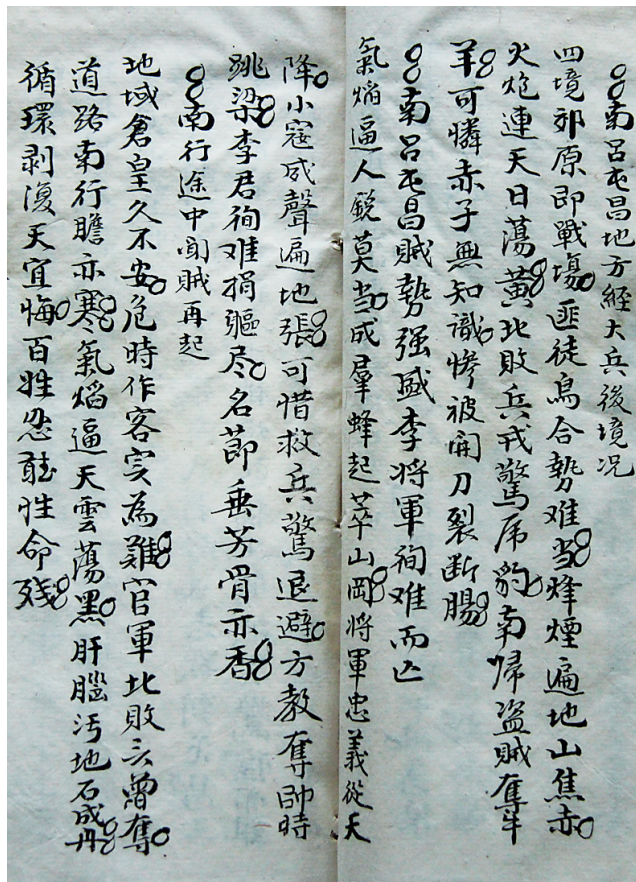 南呂屯昌地方經大兵後境况
四境郊原即戰塲匪徒烏合勢难当烽煙遍地山焦赤
火炮連天日蕩黄北敗兵戎驚虎豹南歸盗賊奪牛
羊可憐赤子無知識慘被開刀裂断腸
南呂屯昌賊勢强盛李将軍殉难而亡
氣焰逼人銳莫当成羣蜂起萃山岡将軍忠義從天
降小寇威聲遍地張可惜救兵驚退避方教奪帥時
跳梁李君殉难捐軀尽名莭垂芳骨亦香
南行途中闻賊再起
地域倉皇久不安危時作客实為難官軍北敗云曾奪
道路南行膽亦寒氣焰逼天雲蕩黑肝腦汚地石成丹
循環剥復天宜悔百姓忍聴性命残